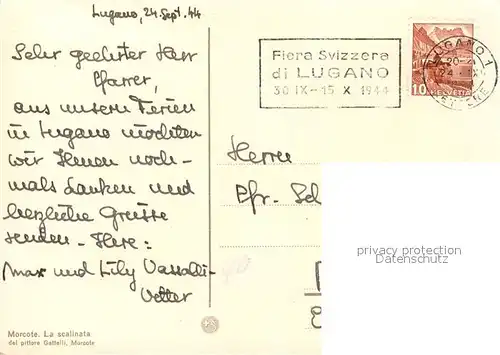 Lugano, 24. Sept. 44
Sehr geehrter Herr
Pfarrer,
aus unsern Ferien
in Lugano möchten
wir Ihnen noch-
mals danken und
herzliche Grüsse
senden. Ihre:
Max und Lily Vassalli-
Vetter
Morcote. La scalinata
del pittore Gattelli, Morcote
Fiera Svizzera
di LUGANO
30 IX-15 X 1944
LUGANO 1
20-
24. IX
10
HELVETIA
Herrn
Pfr. Sch
privacy protection
Datenschutz